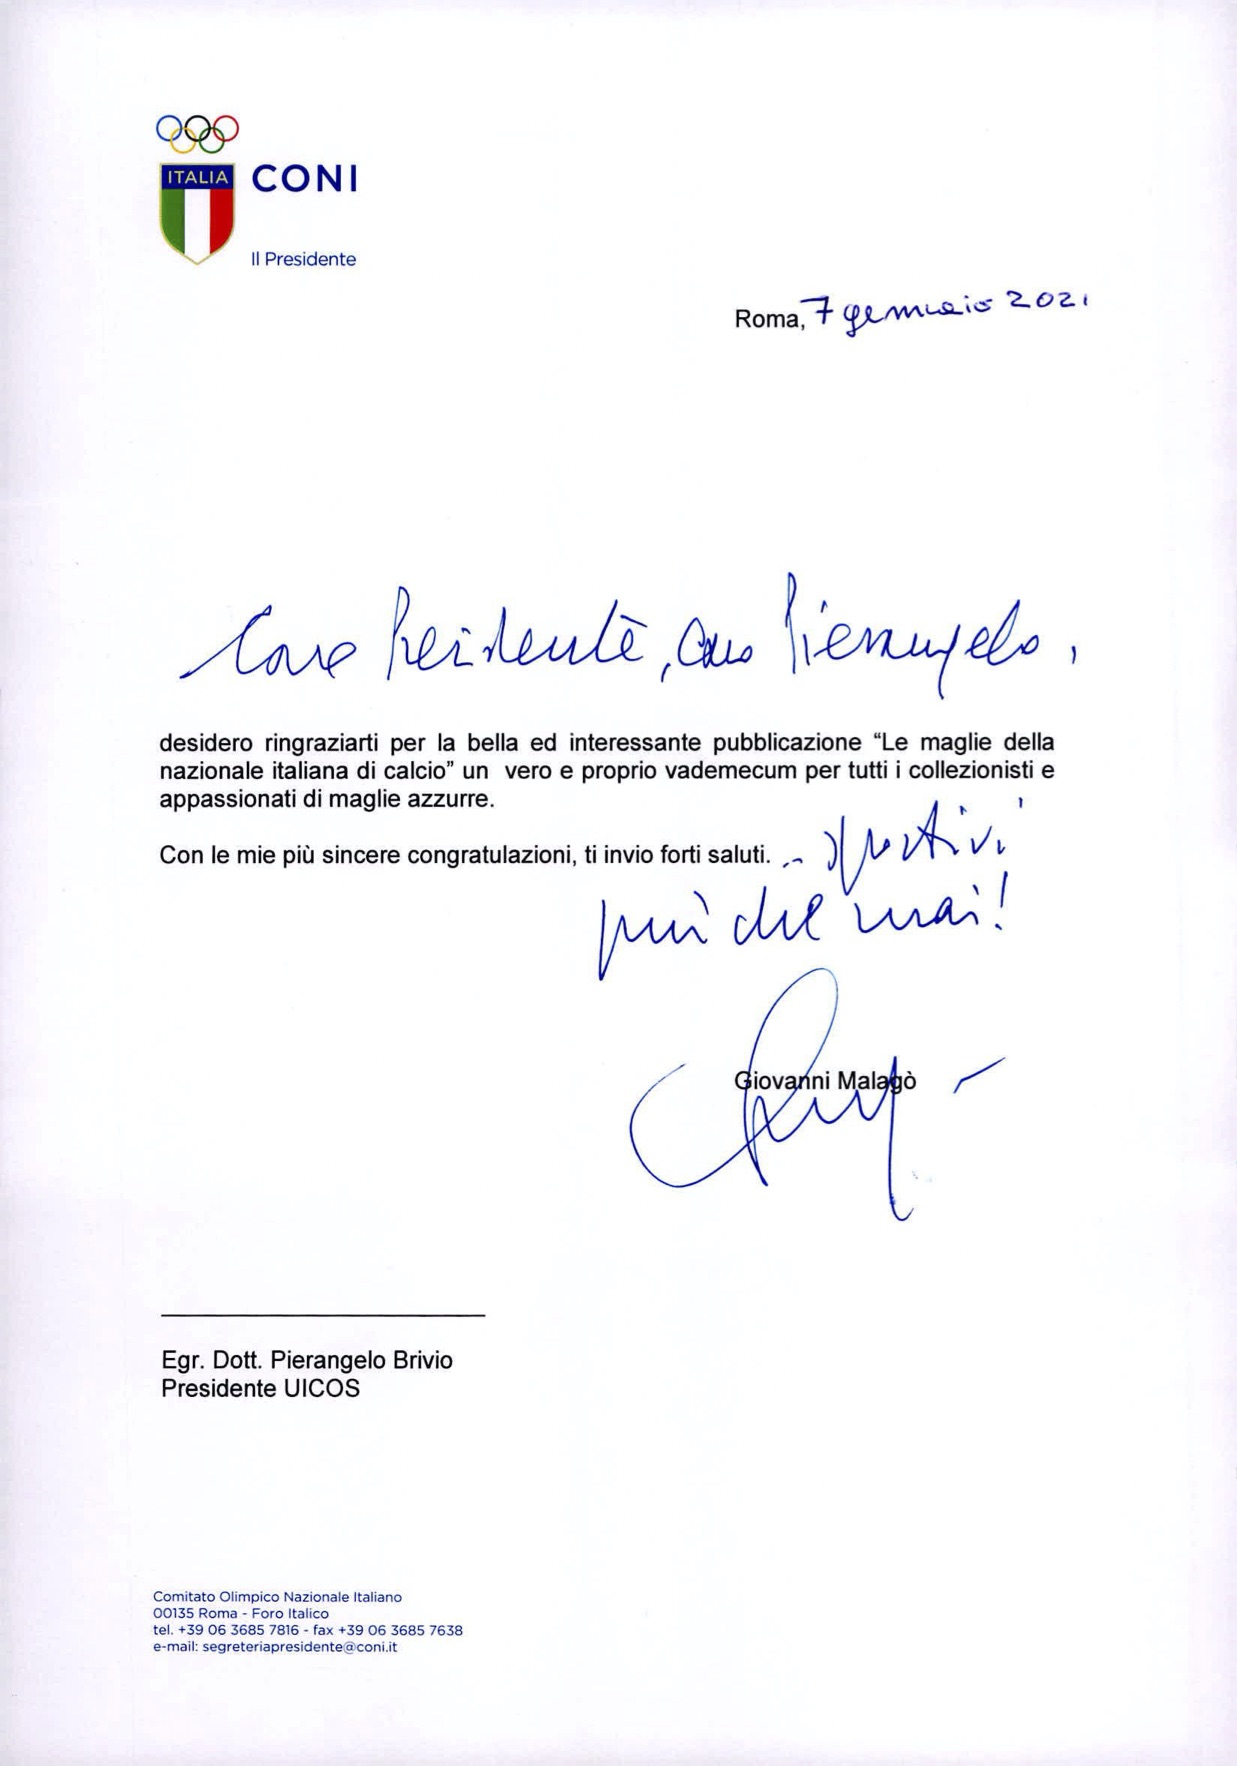 ITALIA
CONI
Il Presidente
Roma, 7 gennaio 2021
Caro Presidente, Caro Pierangelo,
desidero ringraziarti per la bella ed interessante pubblicazione “Le maglie della
nazionale italiana di calcio” un vero e proprio vademecum per tutti i collezionisti e
appassionati di maglie azzurre.
Con le mie più sincere congratulazioni, ti invio forti saluti. .. sportivi
più che mai!
Giovanni Malagò
Egr. Dott. Pierangelo Brivio
Presidente UICOS
Comitato Olimpico Nazionale Italiano
00135 Roma - Foro Italico
tel. +39 06 3685 7816 - fax +39 06 3685 7638
e-mail: segreteriapresidente@coni.it